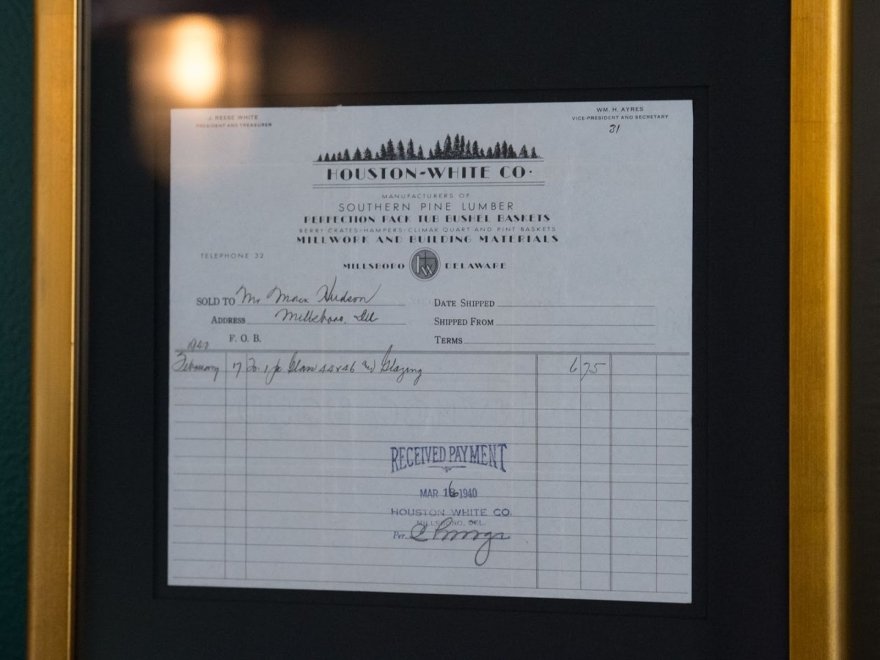 J. REESE WHITE
PRESIDENT AND TREASURER
WM. H. AYRES
VICE-PRESIDENT AND SECRETARY
31
HOUSTON-WHITE CO.
MANUFACTURERS OF
SOUTHERN PINE LUMBER
PERFECTION PACK TUB BUSHEL BASKETS
BERRY CRATES-HAMPERS-CLIMAX QUART AND PINT BASKETS
MILLWORK AND BUILDING MATERIALS
TELEPHONE 32
MILLSBORO DELAWARE
SOLD TO Mr Hudson
DATE SHIPPED
ADDRESS Millsboro, Del
SHIPPED FROM
F. O. B.
TERMS
February 7 To 1 pc Glass 44x46 Glazing 6 75
RECEIVED PAYMENT
MAR 16 1940
HOUSTON WHITE CO.
MILLSBORO, DEL.
Per